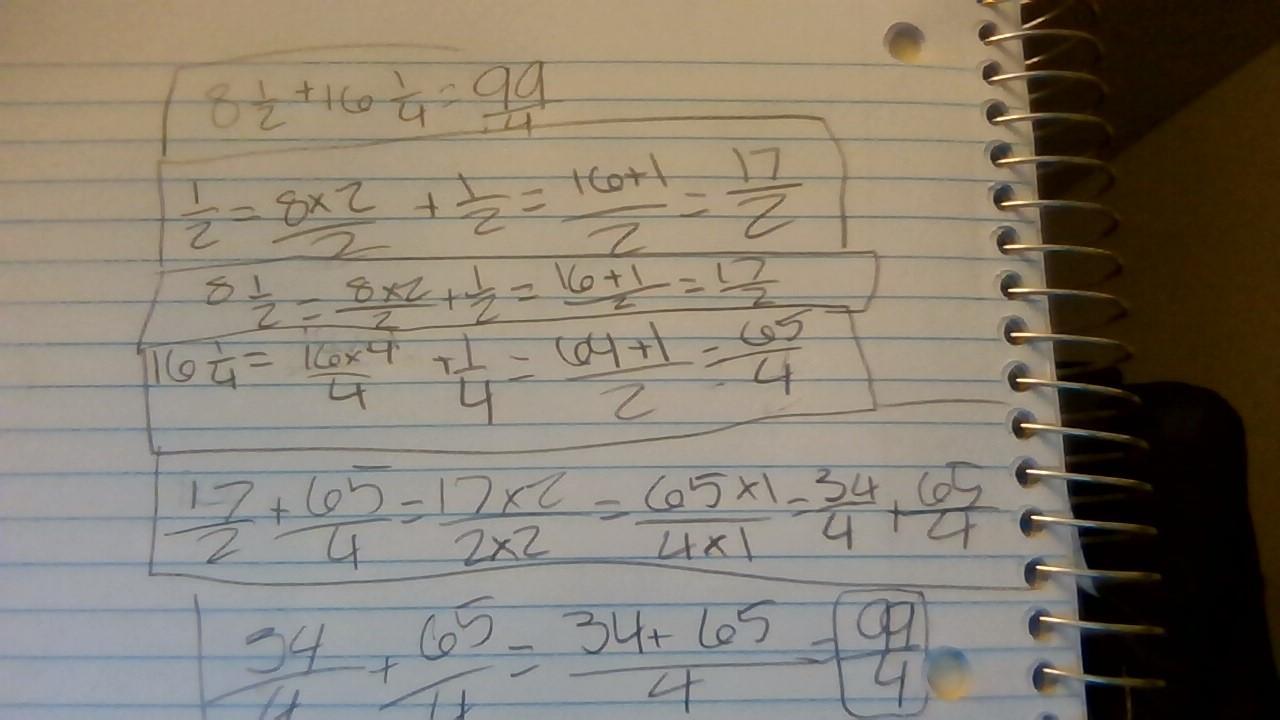 8 1/2 + 16 1/4 = 99/4
1/2 = 8×2/2 + 1/2 = 16+1/2 = 17/2
8 1/2 = 8×2/2 + 1/2 = 16+1/2 = 17/2
16 1/4 = 16×4/4 + 1/4 = 64+1/2 = 65/4
17/2 + 65/4 = 17×2/2×2 = 65×1/4×1 = 34/4 + 65/4
34/4 + 65/4 = 34+65/4 = 99/4